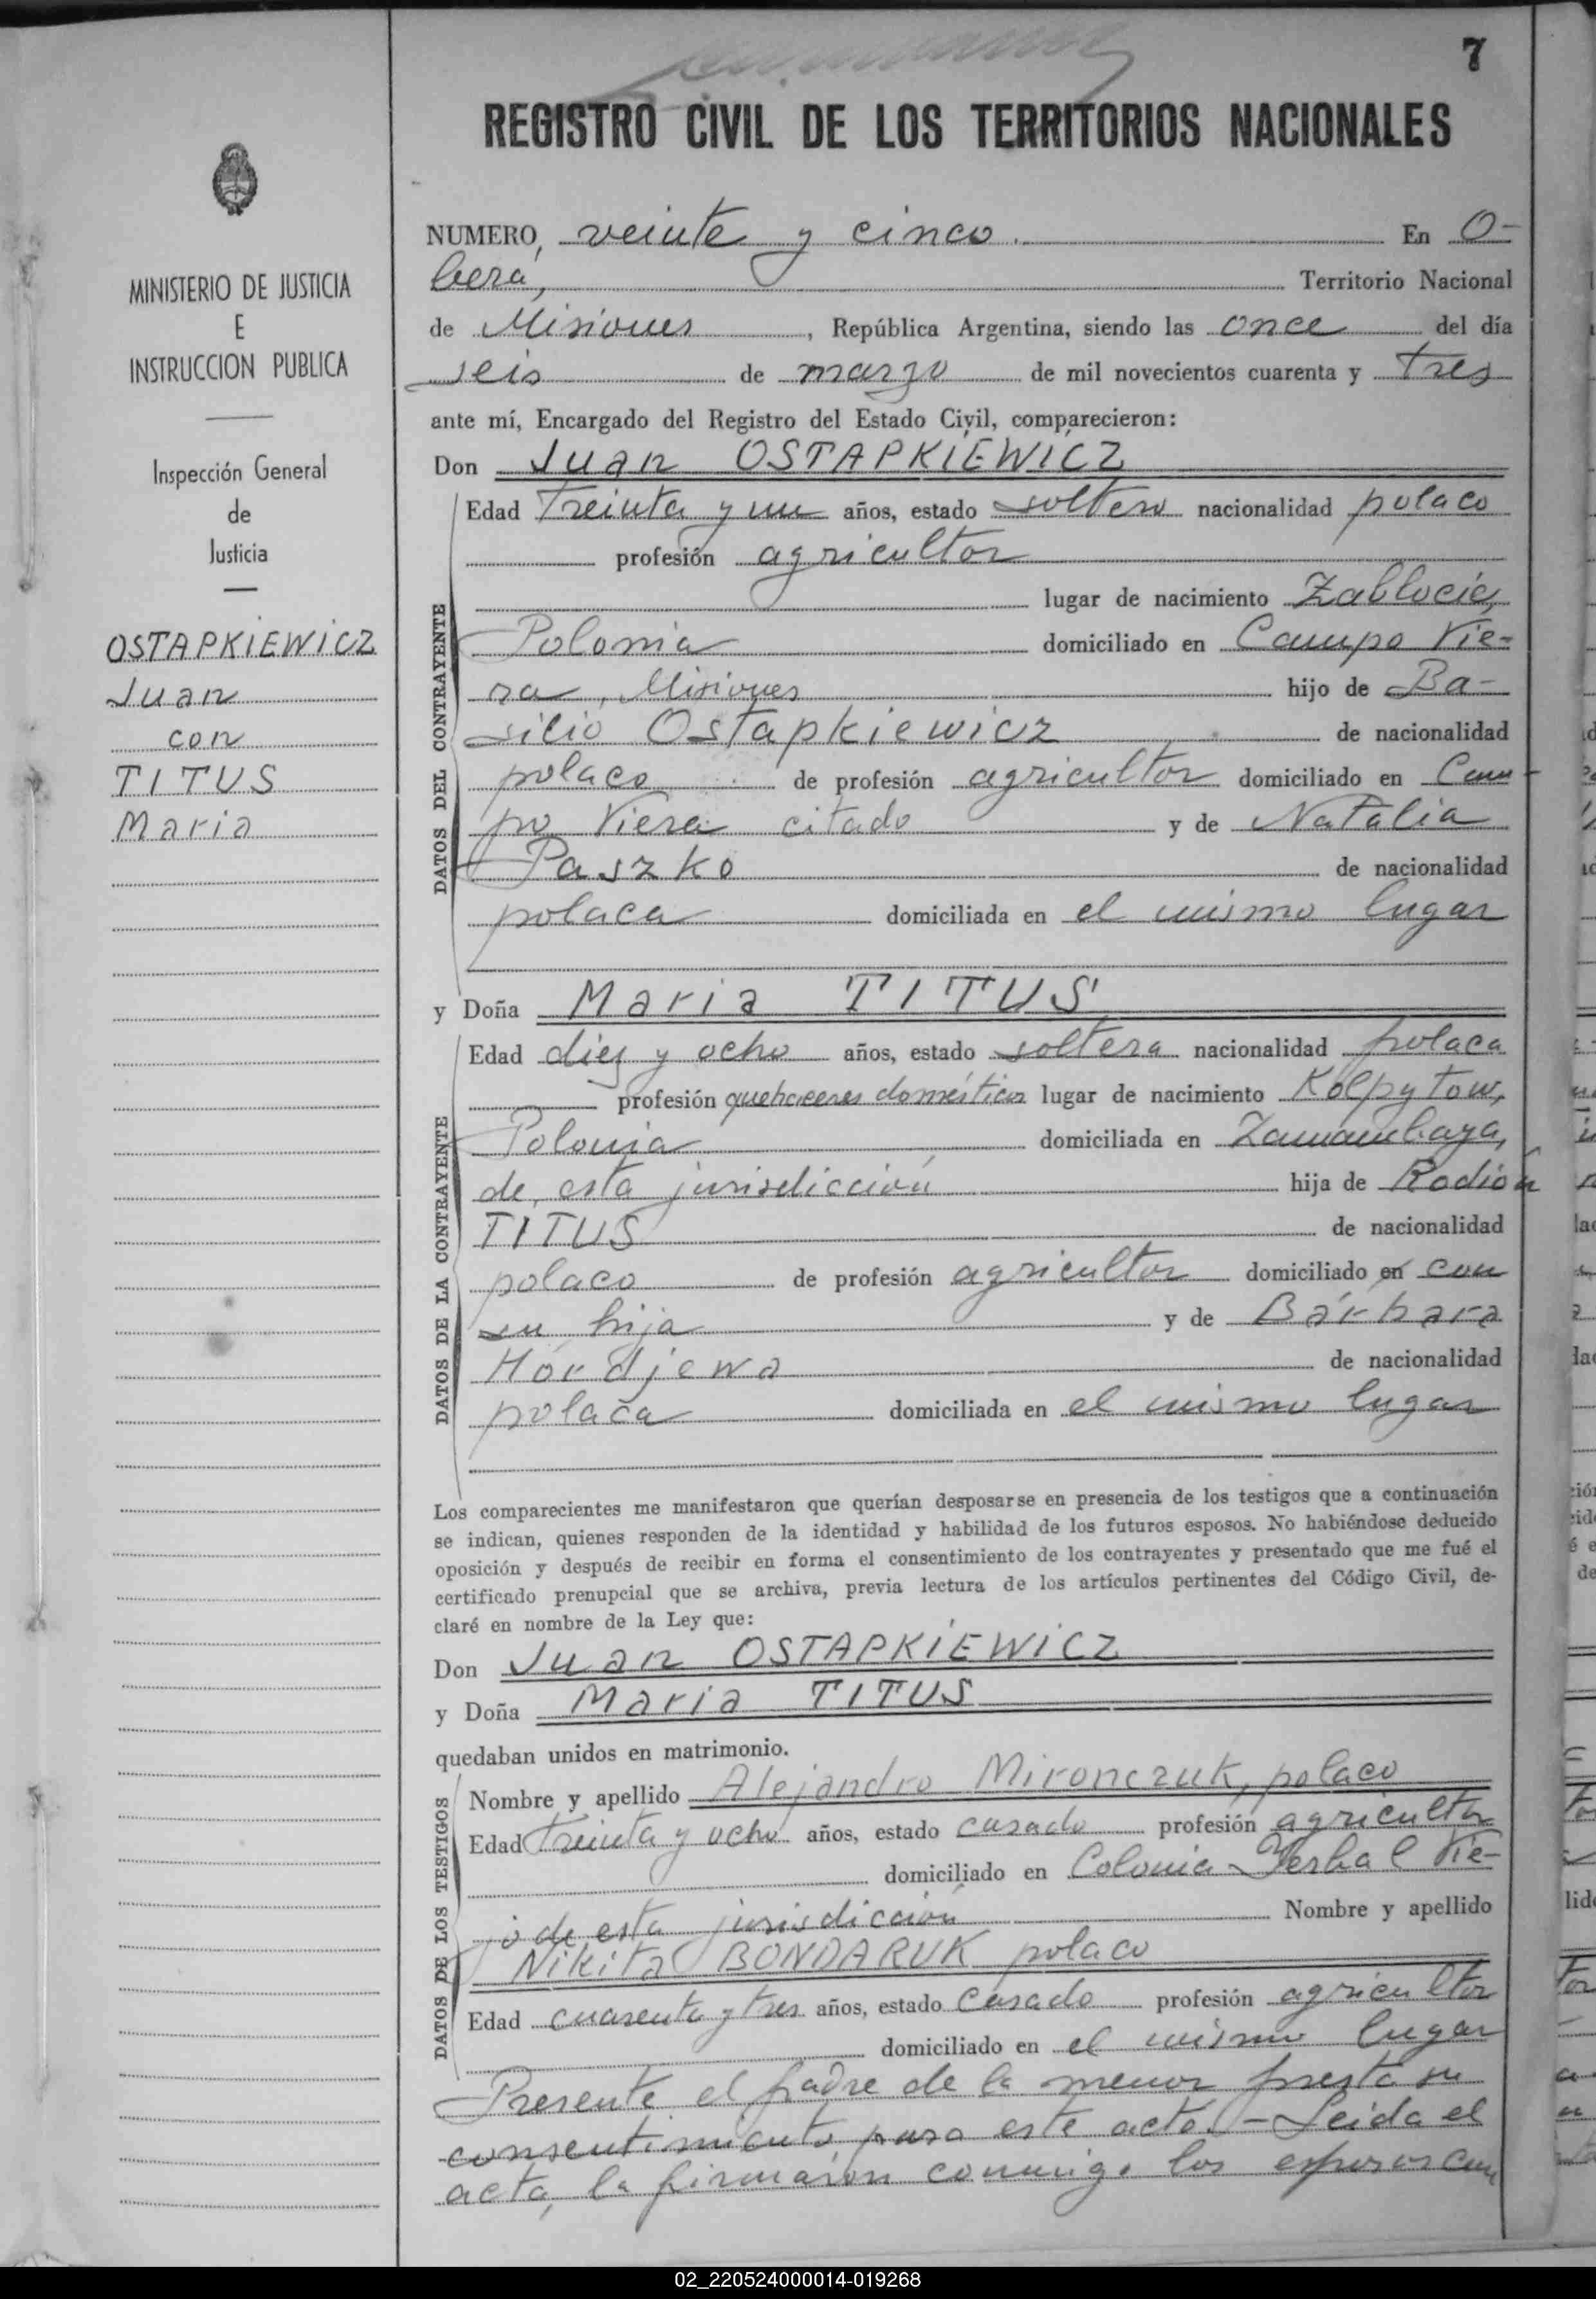 7
REGISTRO CIVIL DE LOS TERRITORIOS NACIONALES
MINISTERIO DE JUSTICIA
E
INSTRUCCION PUBLICA
Inspección General
de
Justicia
OSTAPKIEWICZ
Juan
con
TITUS
Maria
NUMERO, veinte y cinco. En O-
berá, Territorio Nacional
de Misiones, República Argentina, siendo las once del día
seis de marzo de mil novecientos cuarenta y tres
ante mí, Encargado del Registro del Estado Civil, comparecieron:
Don Juan OSTAPKIEWICZ
DATOS DEL CONTRAYENTE
Edad Treinta y un años, estado soltero nacionalidad polaco
profesión agricultor
lugar de nacimiento Zablocie,
Polonia domiciliado en Campo Vie-
ra, Misiones hijo de Ba-
silio Ostapkiewicz de nacionalidad
polaco de profesión agricultor domiciliado en Cam-
po Viera citado y de Natalia
Paszko de nacionalidad
polaca domiciliada en el mismo lugar
y Doña Maria TITUS
DATOS DE LA CONTRAYENTE
Edad diez y ocho años, estado soltera nacionalidad polaca
profesión quehaceres domésticos lugar de nacimiento Kolpytow,
Polonia domiciliada en Zamambaya,
de esta jurisdicción hija de Rodión
TITUS de nacionalidad
polaco de profesión agricultor domiciliado en con
su hija y de Bárbara
Hordjewa de nacionalidad
polaca domiciliada en el mismo lugar
Los comparecientes me manifestaron que querían desposarse en presencia de los testigos que a continuación
se indican, quienes responden de la identidad y habilidad de los futuros esposos. No habiéndose deducido
oposición y después de recibir en forma el consentimiento de los contrayentes y presentado que me fué el
certificado prenupcial que se archiva, previa lectura de los artículos pertinentes del Código Civil, de-
claré en nombre de la Ley que:
Don Juan OSTAPKIEWICZ
y Doña Maria TITUS
quedaban unidos en matrimonio.
DATOS DE LOS TESTIGOS
Nombre y apellido Alejandro Mironczuk, polaco
Edad treinta y ocho años, estado casado profesión agricultor
domiciliado en Colonia Yerbal Vie-
jo de esta jurisdicción Nombre y apellido
Nikita BONDARUK polaco
Edad cuarenta y tres años, estado casado profesión agricultor
domiciliado en el mismo lugar
Presente el padre de la menor presta su
consentimiento para este acto. - Leida el
acta, la firmaron conmigo los esposos con
02_220524000014-019268